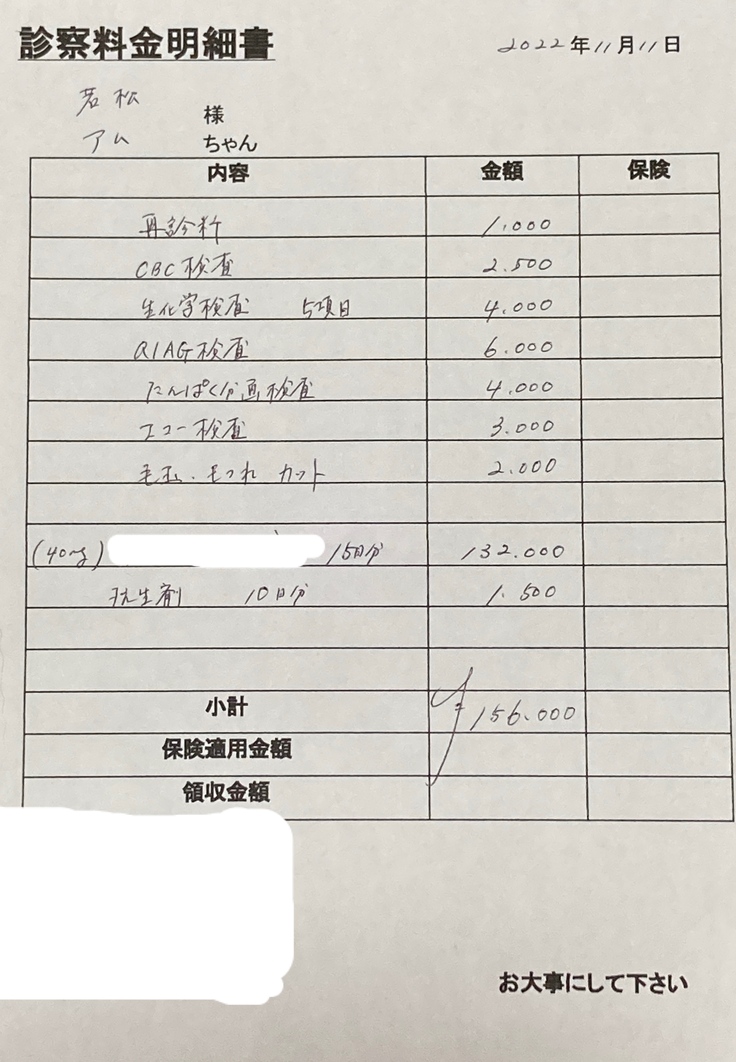 診察料金明細書
2022年11月11日
若松 様
アム ちゃん
内容 金額 保険
再診料 1.000
CBC検査 2.500
生化学検査 5項目 4.000
AIAG検査 6.000
たんぱく分画検査 4.000
エコー検査 3.000
毛玉・もつれ カット 2.000
(40mg) 15日分 132.000
抗生剤 10日分 1.500
小計 ¥156.000
保険適用金額
領収金額
お大事にして下さい